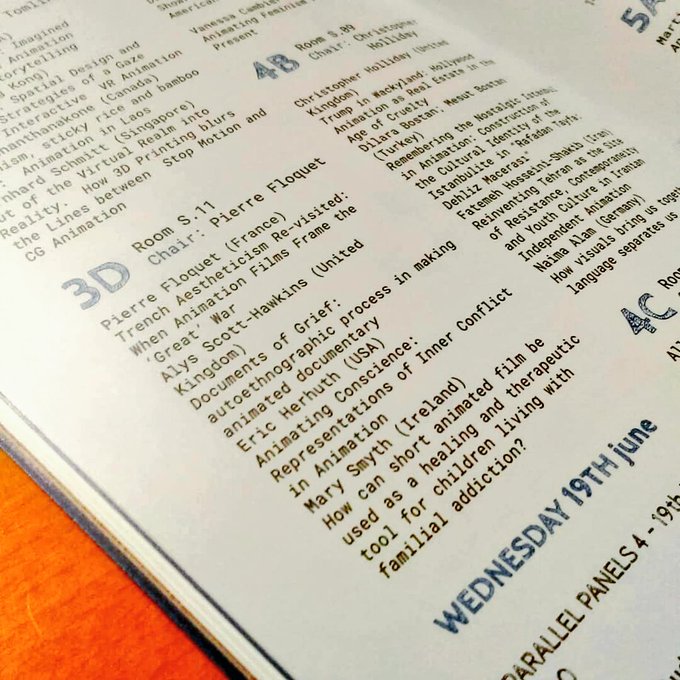 Tomlin
Imagined
Animation
torytelling
Kong)
Spatial Design and
Strategies of a Gaze
Interactive VR Animation
nanthanakone (Canada)
ism, sticky rice and bamboo
: Animation in Laos
nhard Schmitt (Singapore)
ut of the Virtual Realm into
Reality - How 3D Printing blurs
the Lines between Stop Motion and
CG Animation
3D
Room S.11
Chair: Pierre Floquet
Pierre Floquet (France)
Trench Aestheticism Re-visited:
When Animation Films Frame the
'Great' War
Alys Scott-Hawkins (United
Kingdom)
Documents of Grief:
autoethnographic process in making
animated documentary
Eric Herhuth (USA)
Animating Conscience:
Representations of Inner Conflict
in Animation
Mary Smyth (Ireland)
How can short animated film be
used as a healing and therapeutic
tool for children living with
familial addiction?
WEDNESDAY 19TH june
PARALLEL PANELS 4 - 19th
Show
American
Vanessa Cambier
Animating Feminism
Present
4B
Room S.09
Chair: Christopher
Holliday
Christopher Holliday (United
Kingdom)
Trump in Wackyland: Hollywood
Animation as Real Estate in the
Age of Cruelty
Dilara Bostan: Mesut Bostan
(Turkey)
Remembering the Nostalgic
in Animation: Construction of
the Cultural Identity of the
Istanbulite in Rafadan Tayfa:
Dehliz Macerasi
Fatemeh Hosseini-Shakib (Iran)
Reinventing Tehran as the Site
of Resistance, Contemporaneity
and Youth Culture in Iranian
Independent Animation
Naima Alam (Germany)
How visuals bring us together
language separates us
4C
Roo
Al
5A
Mart